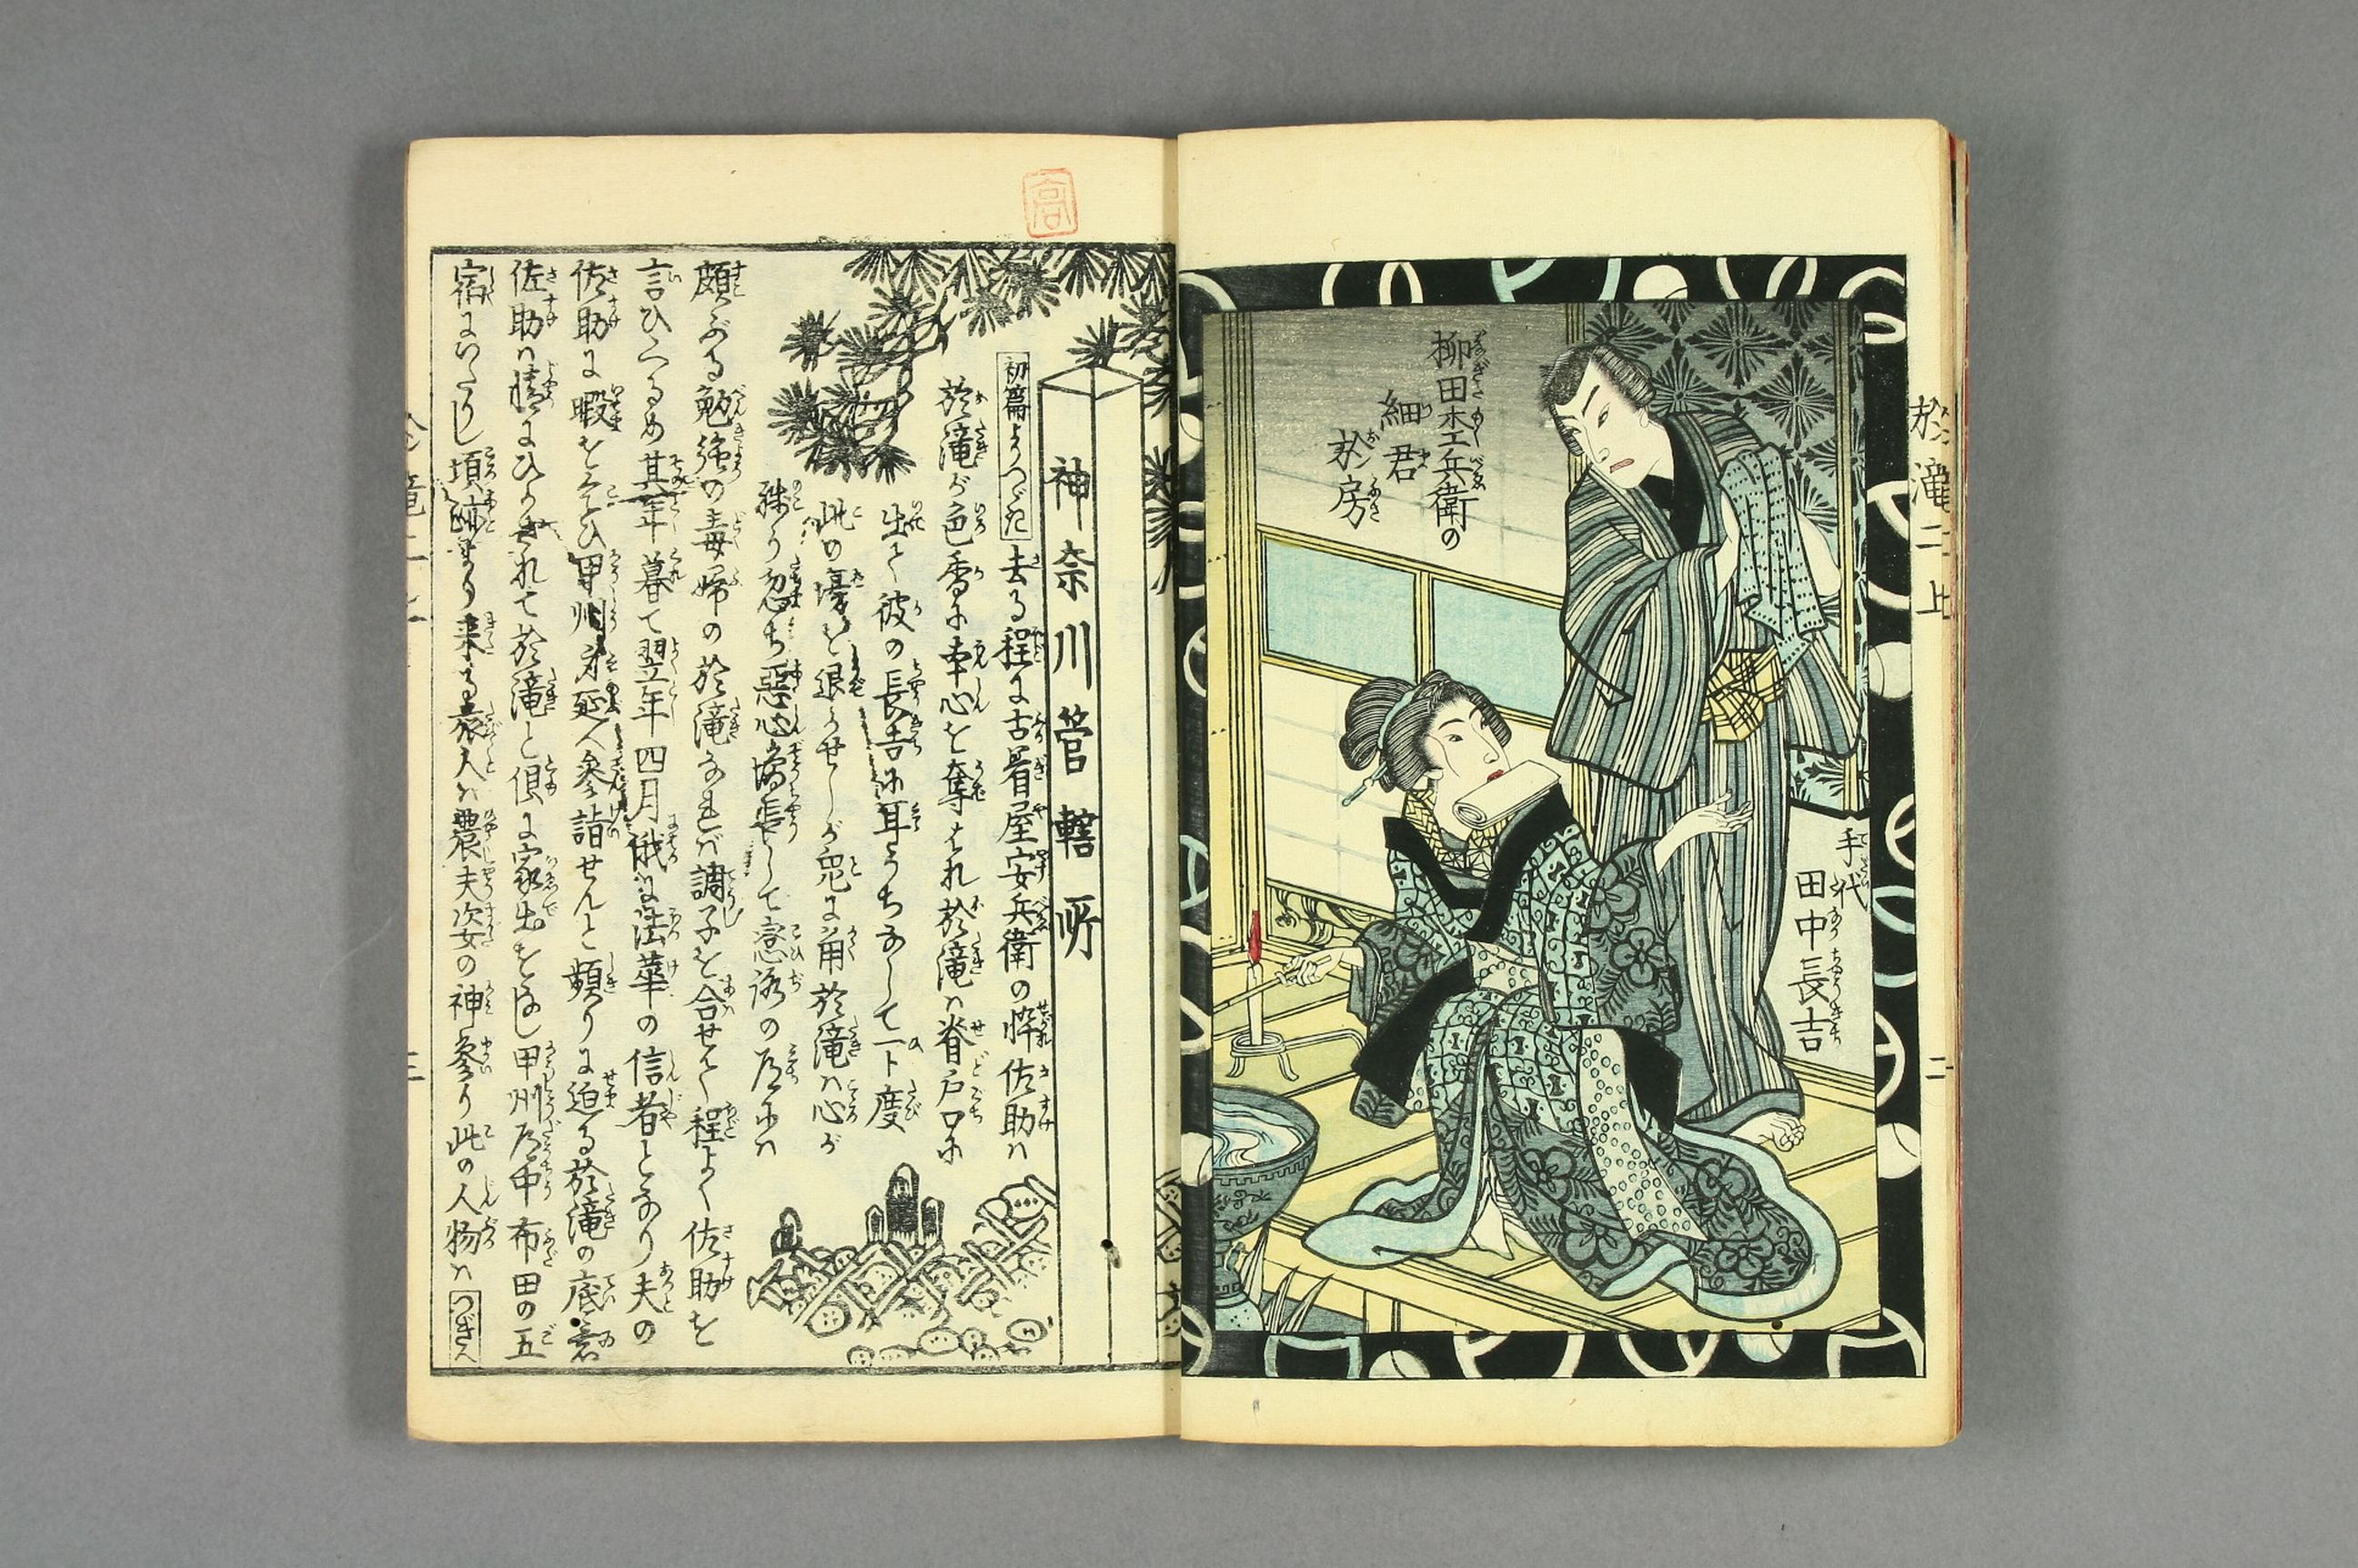 於滝二上
二
柳田杢兵衛の
細君
於房
手代
田中長吉
高
神奈川管轄所
初篇よりつゞき 去る程に古着屋安兵衛の悴佐助ハ
於滝が色香に本心を奪はれ於滝ハ脊戸口に
出て彼の長吉に耳うちなして一ト度
此の場を退かせしが兎に角於滝ハ心が
残り忽ち悪心増長して恋路の
頗ぶる勉強の毒婦の於滝なれバ調子を合せて程よく佐助を
言ひくるめ其年暮て翌年四月俄に法華の信者となり夫の
佐助に暇をこひ甲州身延へ参詣せんと頻りに迫る於滝の底意
佐助ハ情にひかされて於滝と倶に家出をなし甲州道中布田の五
宿にいたりし頃跡より来る旅人ハ農夫姿の神参り此の人物ハ つぎへ